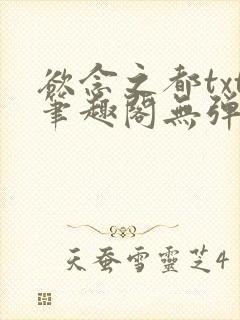 欲念之都txt
笔趣阁無弹
天蚕雪靈芝4